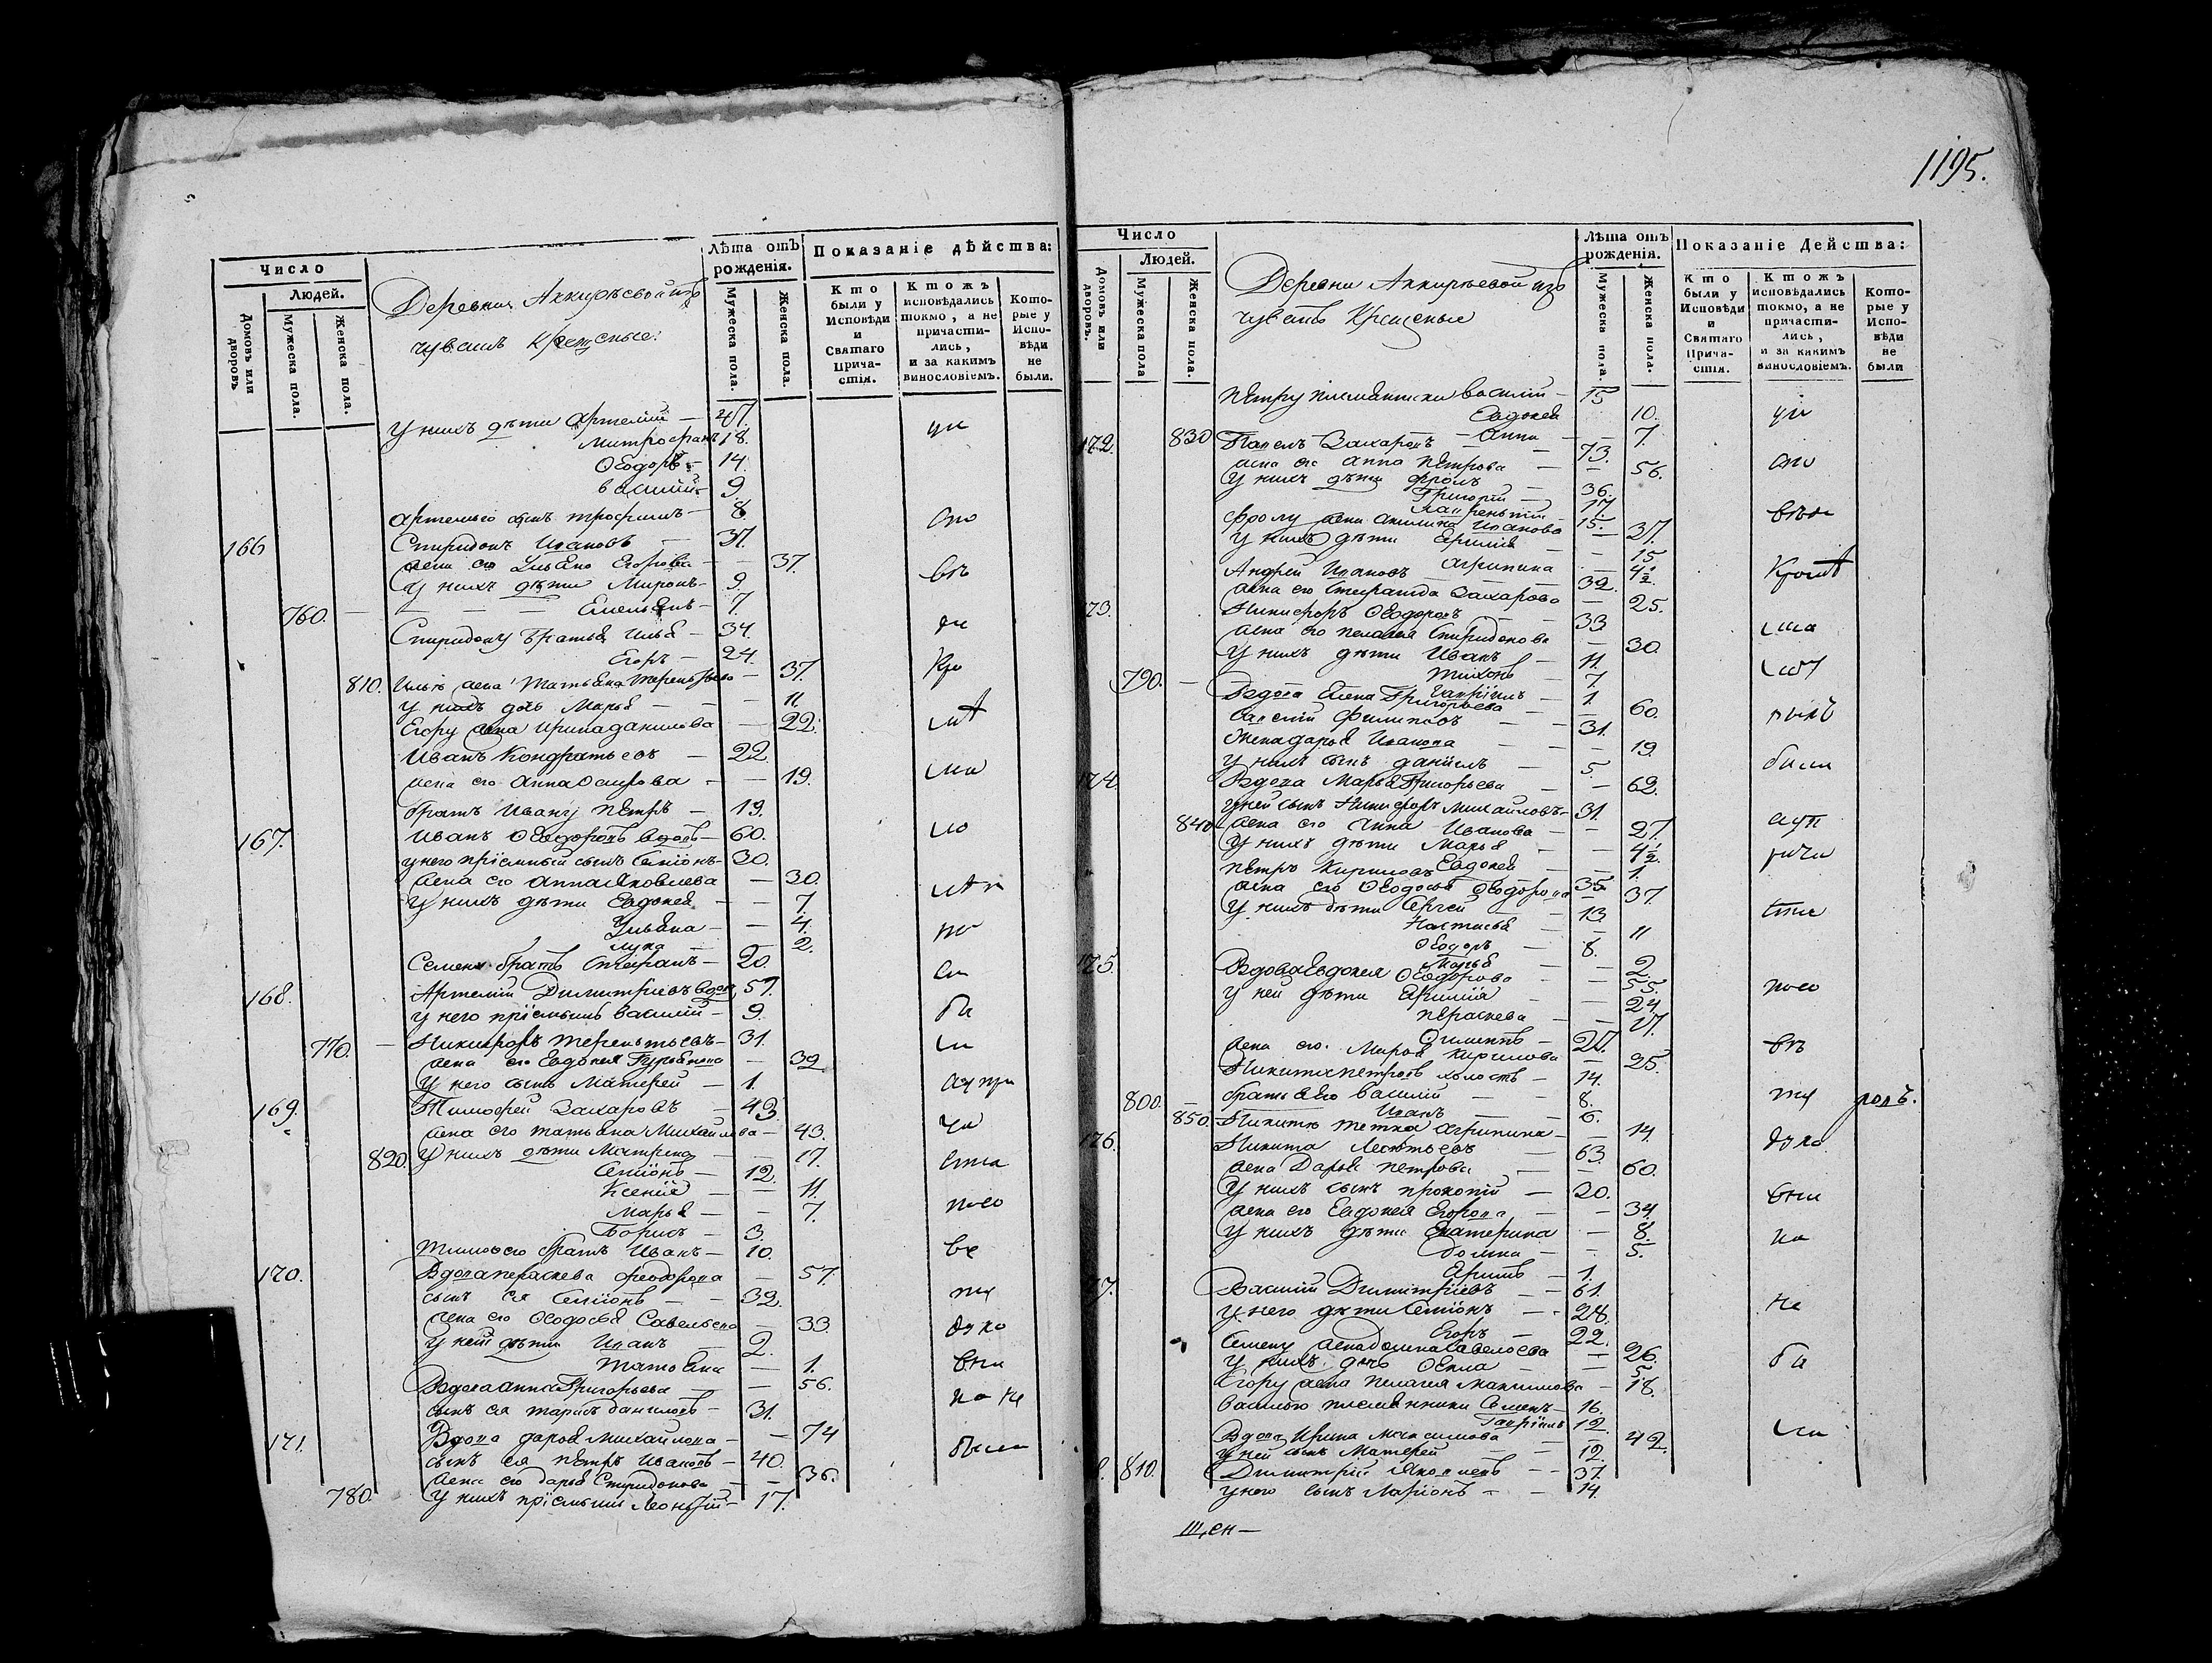 1195.
Число
Людей.
Домовъ или дворовъ
Мужеска пола.
Женска пола.
Деревни Аккиревой изъ
чувашъ Крещеные.
Лѣта отъ рожденія.
Мужеска пола.
Женска пола.
Показаніе дѣйства:
Кто были у Исповѣди и Святаго Прича-стія.
Ктожъ исповѣдались токмо, а не причасти-лись, и за какимъ винословіемъ.
Кото-рые у Испо-вѣди не были.
У нихъ дѣти Артемій — 47.
Митрофанъ 18.
Ѳеодоръ — 14.
Василій — 9.
Артемью сынъ Трофимъ — 8
166 Спиридонъ Ивановъ — 37.
жена его Ульяна Егорова — 37.
У нихъ дѣти Миронъ — 9.
760. — Емельянъ — 7.
Спиридону братья Илья — 34.
Егоръ — 24.
810. Ильѣ жена Татьяна Терентьева — 37.
У нихъ дочь Марья — 11.
Егору жена Ирина Данилова — 22.
Иванъ Кондратьевъ — 22.
жена его Анна Осипова — 19.
братъ Ивану Петръ — 19.
167. Иванъ Ѳеодоровъ вдовъ — 60.
у него пріемный сынъ Семіонъ — 30.
жена его Анна Яковлева — 30.
У нихъ дѣти Евдокея — 7.
Ульяна — 4.
Лука — 2.
Семену братъ Степанъ — 20.
168. Артемій Димитріевъ вдов. 57.
У него пріемышъ Василій — 9.
770. — Никифоръ Терентьевъ — 31.
жена его Евдокея — 32
У него сынъ Матвей — 1.
169. Тимофей Захаровъ — 43.
жена его Татьяна Михайлова — 43.
820. У нихъ дѣти Матрена — 17.
Семіонъ — 12.
Ксенія — 11.
Марья — 7.
Борисъ — 3.
братъ Иванъ — 10.
170. Вдова Пераскева Ѳеодорова — 57.
сынъ ея Семіонъ — 32.
жена его Ѳеодосья Савельева — 33.
У ней дѣти Иванъ — 2.
Татьяна — 1.
Вдова Анна Григорьева — 56.
сынъ ея Тарасъ Даниловъ — 31.
171. Вдова Дарья Михайлова — 74
сынъ ея Петръ Ивановъ — 40.
жена его Дарья Спиридонова — 36.
780. У нихъ пріемышъ Леонтій — 17.
Число
Людей.
Домовъ или дворовъ.
Мужеска пола
Женска пола.
Деревни Аккиревой изъ
чувашъ Крещеные
Лѣта отъ рожденія.
Мужеска пола.
Женска пола.
Показаніе Действа:
Кто были у Исповѣди и Святаго Прича-стія.
Ктожъ исповѣдались токмо, а не причасти-лись, и за какимъ винословіемъ.
Кото-рые у Испо-вѣди не были
Петру племянники Василій — 15
Евдокея 10.
830 — Анна — 7.
172. Павелъ Захаровъ — 73.
жена его Анна Петрова — 56.
У нихъ дѣти Фролъ — 36.
Григорій — 17
Лаврентій 15.
Фролу жена Акилина Иванова — 37.
У нихъ дѣти Ефимія — 15
Агрипина — 4½
Андрей Ивановъ 32.
жена его Степанида Захарова — 25.
173. Никифоръ Ѳеодоровъ — 33
жена его Пелагея Спиридонова — 30.
У нихъ дѣти Иванъ — 11.
790. — Тихонъ — 7.
Гавріилъ — 1.
Вдова Елена Григорьева — 60.
Василій Филиповъ — 31.
Жена Дарья Иванова — 19.
У нихъ сынъ Даніилъ — 5.
174. Вдова Марья Григорьева — 62.
у ней сынъ Никифоръ Михайловъ — 31.
840 жена его Анна Иванова — 27.
У нихъ дѣти Марья — 4½.
Евдокея — 1.
Петръ Кириловъ 35.
жена его Ѳеодосья Ѳеодорова 37.
У нихъ дѣти Сергей — 13.
Настасья — 11
Ѳеодоръ — 8.
Марья — 2.
175. Вдова Евдокея Ѳеодорова — 55.
У ней дѣти Ефимія — 24.
Пераскева — 17.
жена его Марья Кирилова — 25.
Никита Петровъ холостъ — 14.
800. братья его Василій — 8.
Иванъ — 6.
850. Никитѣ тетка Агрипина — 14.
176. Никита Леонтьевъ — 63.
жена Дарья Петрова — 60.
У нихъ сынъ Прокопій — 20.
жена его Евдокея Егорова — 34.
У нихъ дѣти Екатерина — 8.
Домна — 5.
Ефимъ — 1.
Василій Димитріевъ — 61.
У него дѣти Семіонъ — 28.
Егоръ — 22.
Семену жена Домна Савельева 26.
У нихъ дочь Ѳекла — 5.
Егору жена Пелагея Максимова — 18.
Василью племянники Семенъ — 16.
Гавріилъ 12.
Вдова Ирина Максимова — 42.
у ней сынъ Матвей — 12.
810. Димитрій Яковлевъ — 37.
у него сынъ Ларіонъ — 14.